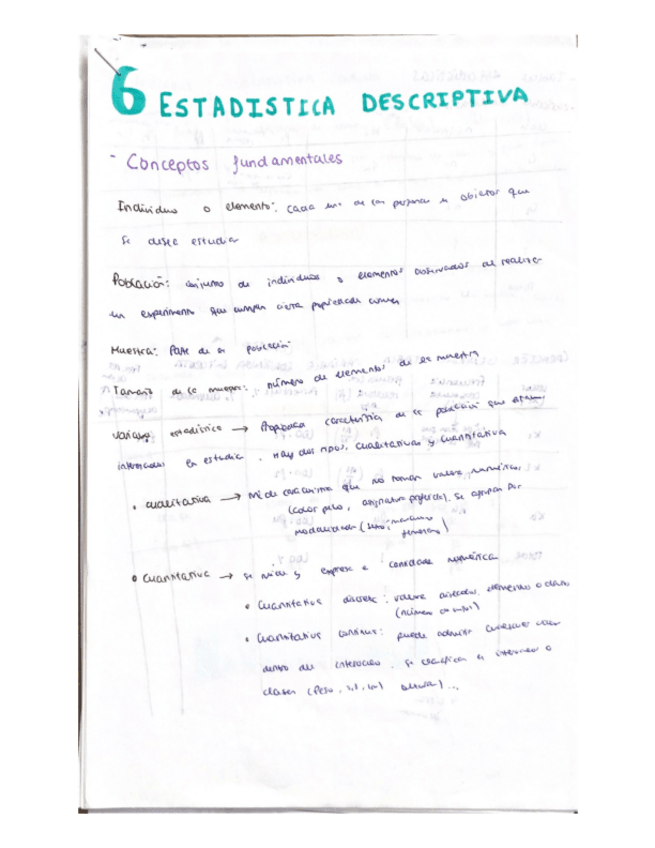 6 ESTADISTICA DESCRIPTIVA
- Conceptos fundamentales
Individuo o elemento: cada uno de las personas u objetos que
se desee estudiar
Población: conjunto de individuos o elementos observados al realizar
un experimento que cumplan cierta propiedad común
Muestra: Parte de la población
Tamaño de la muestra: número de elementos de la muestra
variable estadística → Propiedad característica de la población que estamos
interesados en estudiar. Hay dos tipos, cualitativas y cuantitativa
• cualitativa → Mide característica que no toman valores numéricos
(color pelo, asignatura preferida). Se agrupan por
modalidades (sexo, masculino
femenino)
• Cuantitativa → se mide y expresa a cantidade numérica
• Cuantitativa discreta: valores aislados, elementos o datos
(número de hijos)
• Cuantitativa continua: puede admitir cualquier valor
dentro del intervalo. Se clasifican en intervalo o
clases (Peso, altura)...